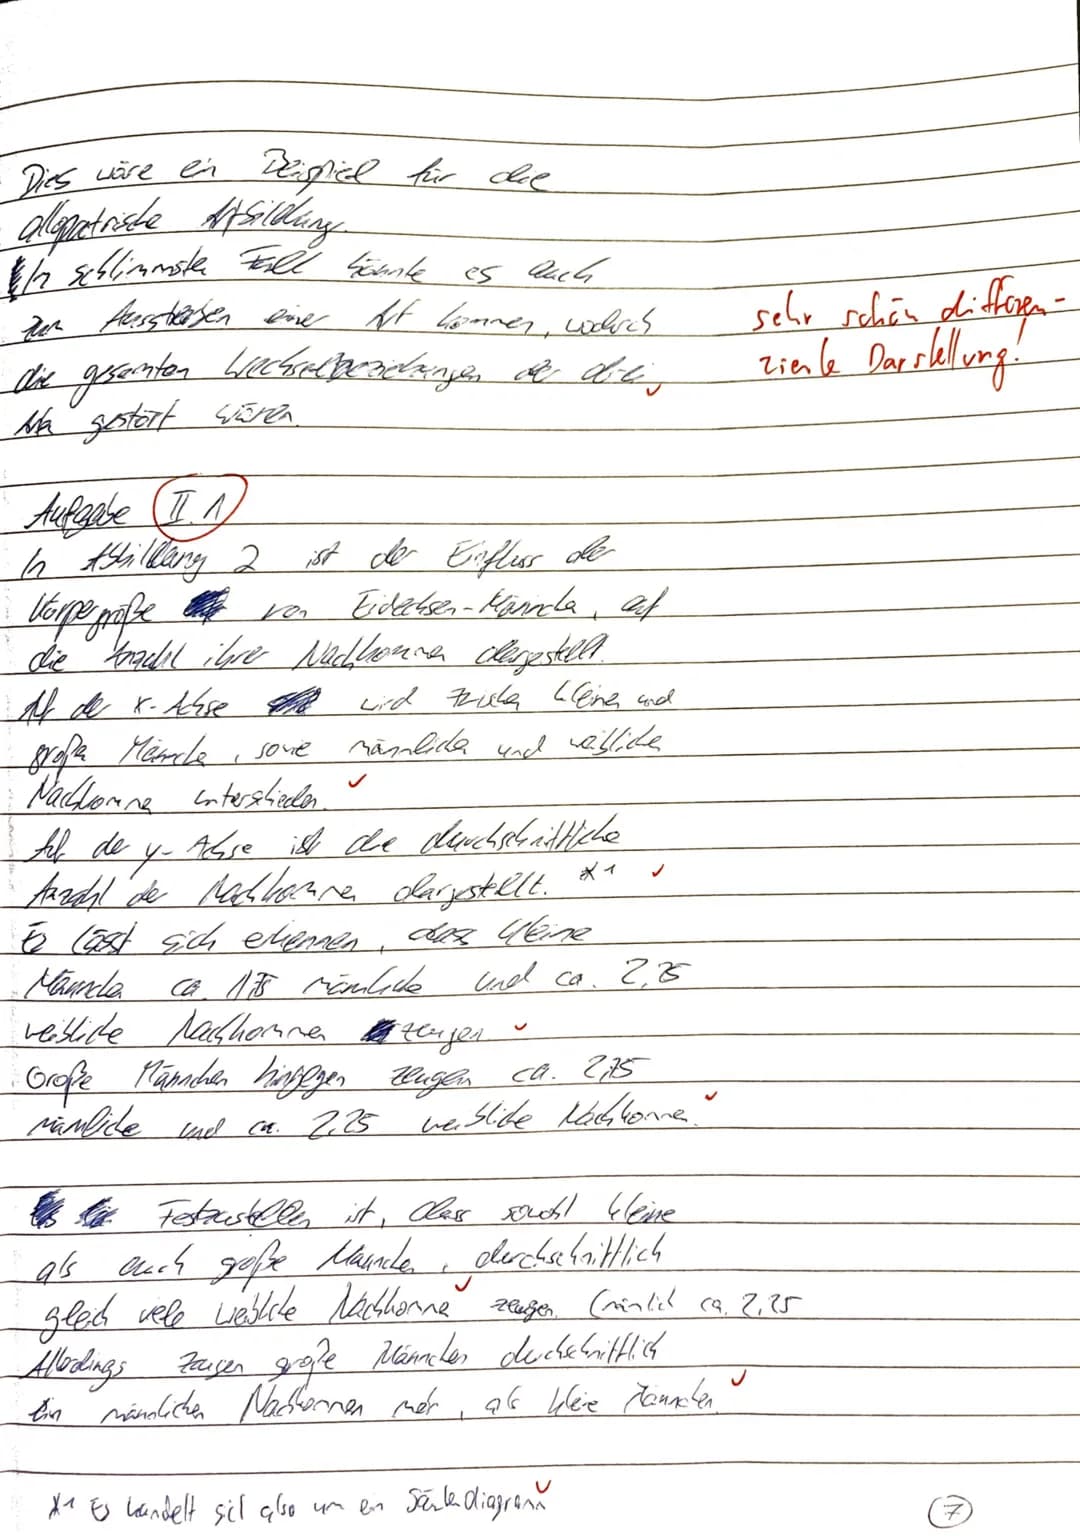 Dies wäre ein Beispiel für die
allopatrische Artbildung.
In schlimmsten Fall könnte es auch
zum Aussterben einer Art kommen, wodurch
sehr schön differen-
zierte Darstellung!
die gesamten Wechselbeziehungen der
gestört wären.
Aufgabe II.1
In Abbildung 2 ist der Einfluss der
Körpergröße von Eidechsen-Männchen, auf
die Anzahl ihrer Nachkommen dargestellt.
Auf der x-Achse wird zwischen kleinen und
großen Männchen, sowie männlichen und weiblichen
Nachkommen unterschieden.
Auf der y-Achse ist die durchschnittliche
Anzahl der Nachkommen dargestellt. *1
Es lässt sich erkennen, dass kleine
Männchen ca. 1,75 männliche und ca. 2,25
weibliche Nachkommen zeugen
Große Männchen hingegen zeugen ca. 2,75
männliche und ca. 2,25 weibliche Nachkommen.
Festzustellen ist, dass sowohl kleine
als auch große Männchen, durchschnittlich
gleich viele weibliche Nachkommen zeugen. (nämlich ca. 2,25
Allerdings zeugen große Männchen durchschnittlich
Ein männlichen Nachkommen mehr, als kleine Männchen.
*1 Es handelt sich also um ein Säulendiagramm
7